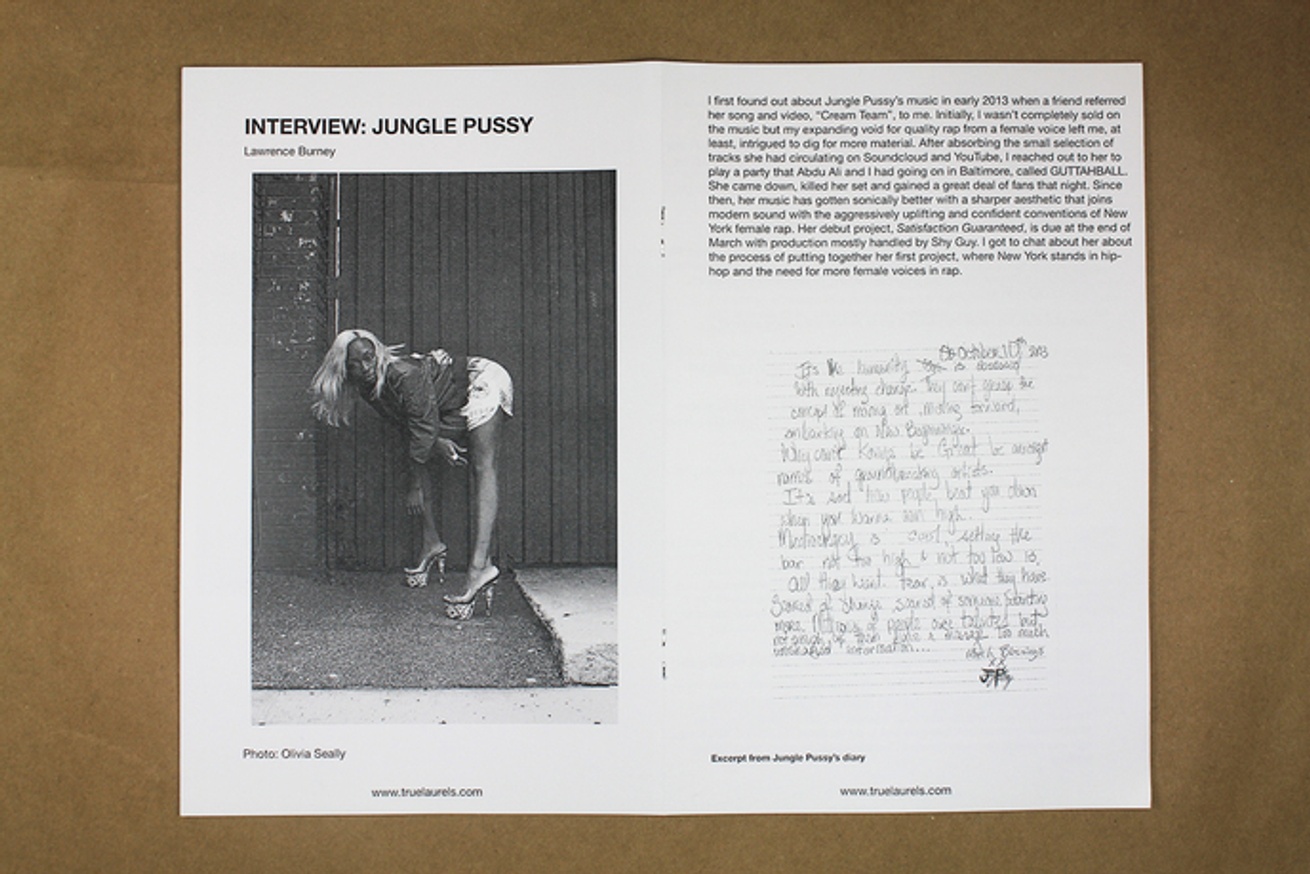 INTERVIEW: JUNGLE PUSSY
Lawrence Burney
Photo: Olivia Seally
www.truelaurels.com
I first found out about Jungle Pussy's music in early 2013 when a friend referred
her song and video, "Cream Team", to me. Initially, I wasn't completely sold on
the music but my expanding void for quality rap from a female voice left me, at
least, intrigued to dig for more material. After absorbing the small selection of
tracks she had circulating on Soundcloud and YouTube, I reached out to her to
play a party that Abdu Ali and I had going on in Baltimore, called GUTTAHBALL.
She came down, killed her set and gained a great deal of fans that night. Since
then, her music has gotten sonically better with a sharper aesthetic that joins
modern sound with the aggressively uplifting and confident conventions of New
York female rap. Her debut project, Satisfaction Guaranteed, is due at the end of
March with production mostly handled by Shy Guy. I got to chat about her about
the process of putting together her first project, where New York stands in hip-
hop and the need for more female voices in rap.
October 10th 2013
It's humanity is obsessed
with rejecting change. They can't grasp the
concept of moving on, moving forward,
embarking on New Beginnings.
Why can't Kanye be Great be amongst
names of groundbreaking artists.
It's sad how people beat you down
when you wanna aim high.
Mediocrity is cool, setting the
bar not too high & not too low is
all they want. Fear is what they have
Scared of change, scared of someone
more. Millions of people are talented but
not enough of them too much
information...
JP
Excerpt from Jungle Pussy's diary
www.truelaurels.com